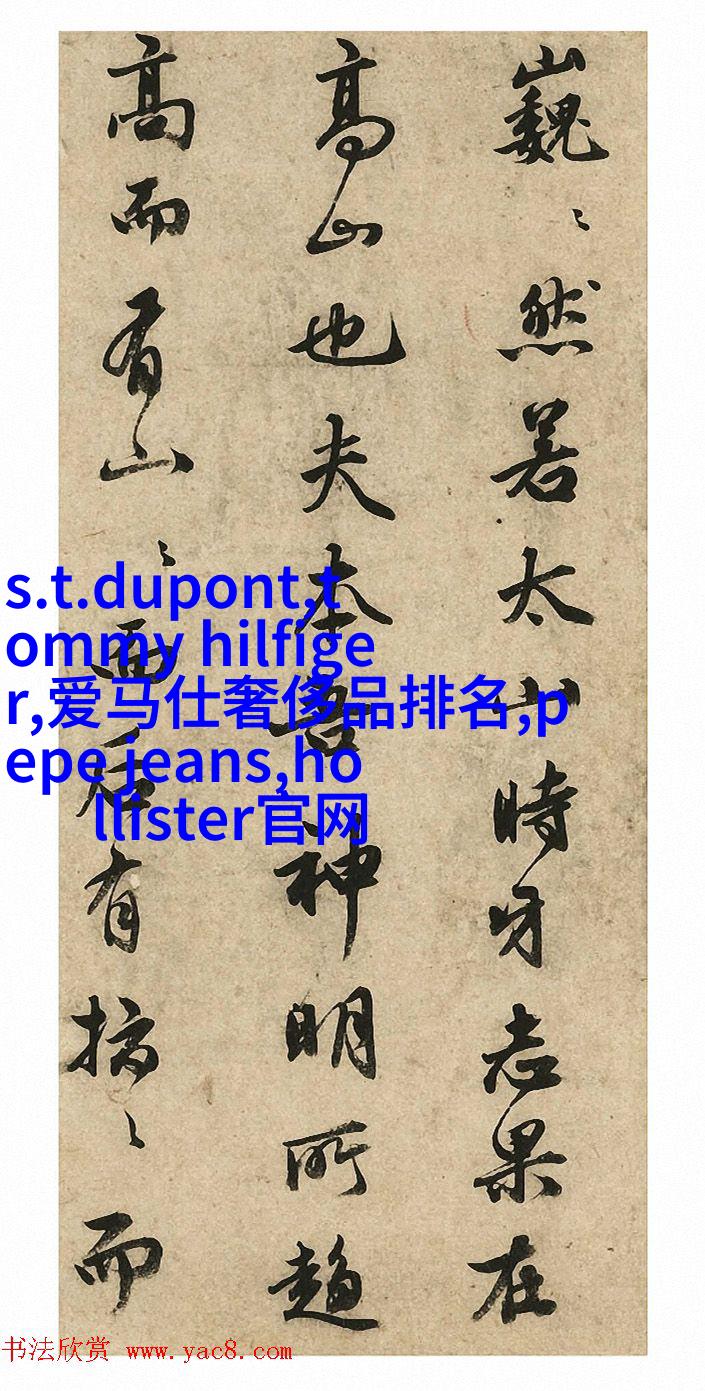 巍〻然若太山時牙志果在
高山也夫本吾神明所趍
高而有山〻而后有〻而
s.t.dupont,t
ommy hilfige
r,爱马仕奢侈品排名,p
epe jeans,ho
llister官网
书法欣赏 www.yac8.com